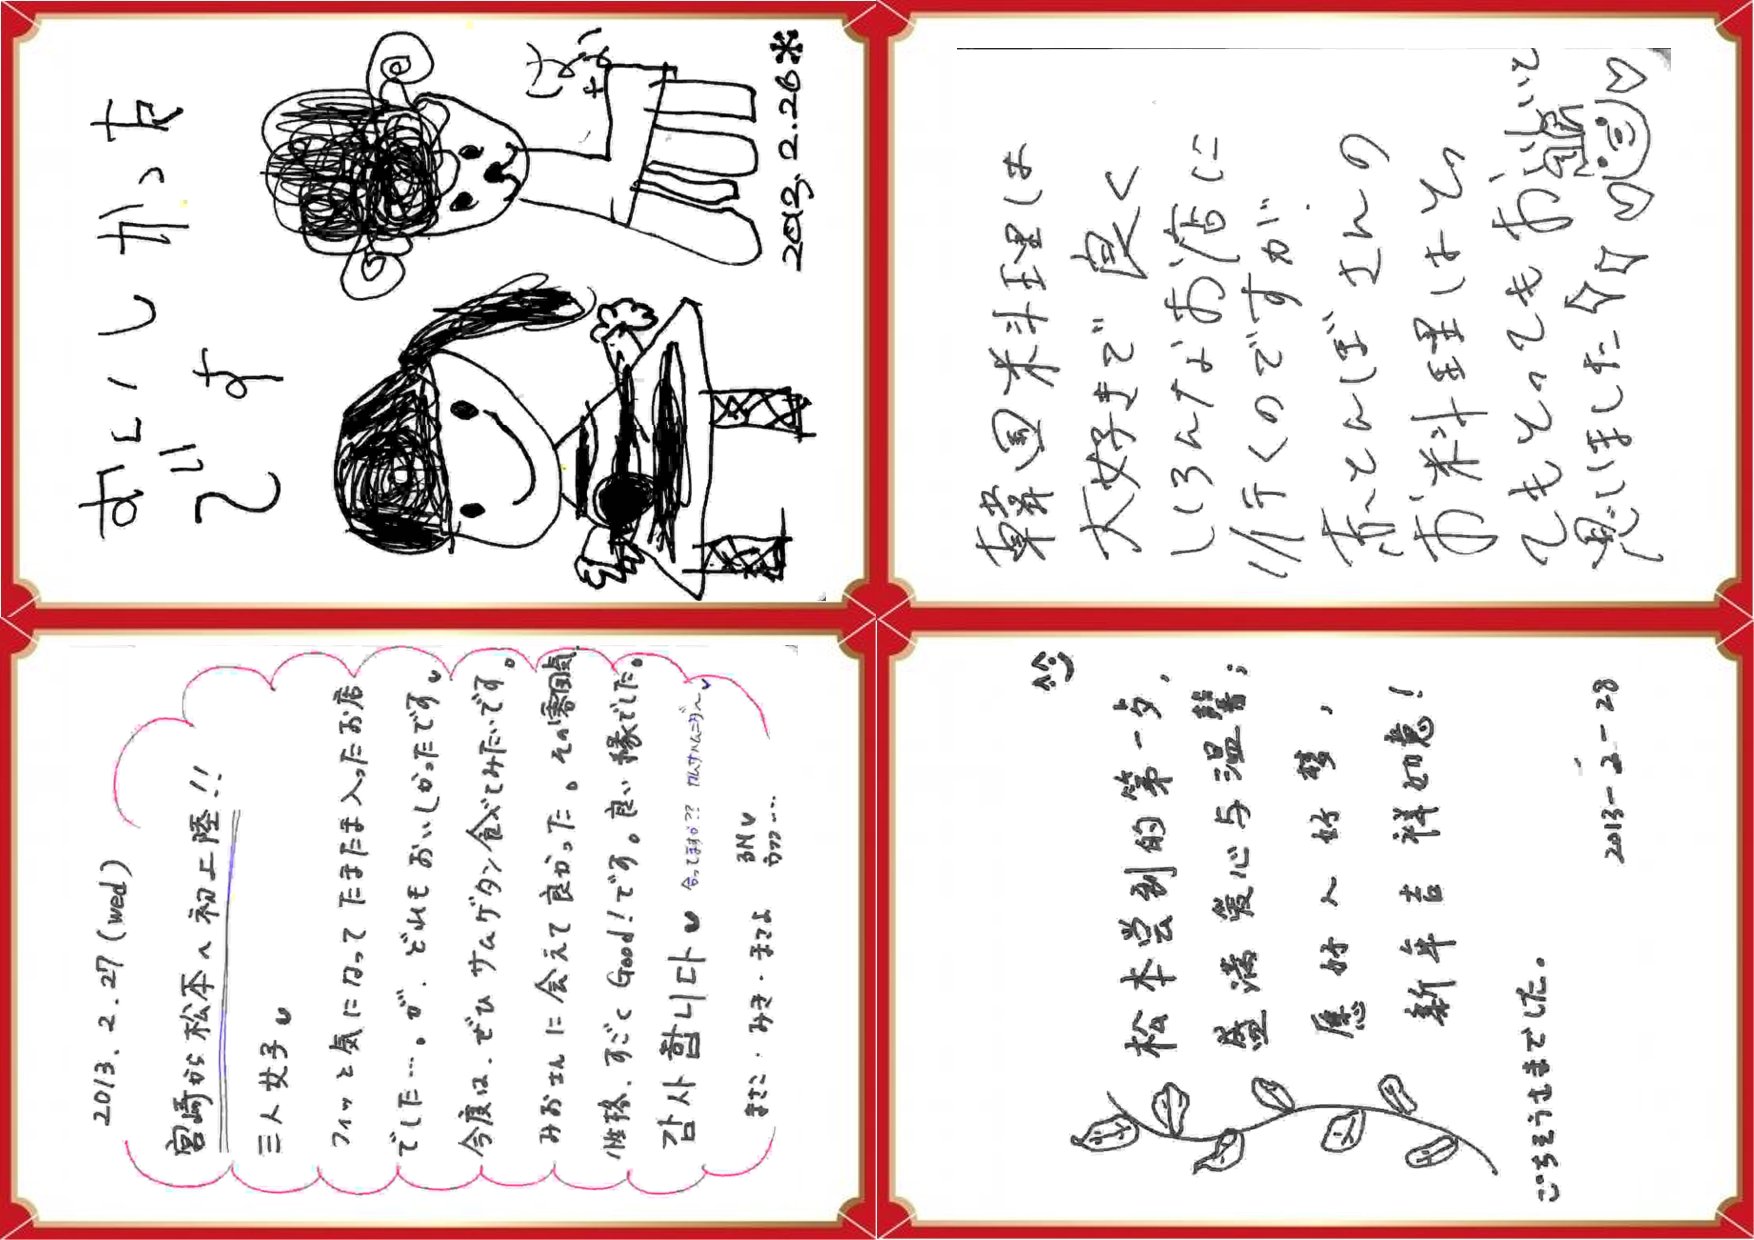 おいしかった
です
2013.2.26※
韓国料理は
大好きで 良く
いろんなお店に
行くのですが
赤とんぼさんの
お料理はとっ
てもとってもお いと
思いました
2013.2.27(wed)
宮崎から松本へ初上陸!!
三人女子♥
フィッと気になって たまたま入ったお店
でした…。が、どれもおいしかったです♥
今度は、ぜひ サムゲタン食べてみたいです。
みおさんに会えて良かった。その雰囲気、
性格、すごく Good!です。良い縁でした。
감사합니다♥ 合ってますか?? カムサハムニダ〜♥
まさこ・みき・まさよ
松本尝到的第一夕,
盛满爱心与温馨;
愿好人好梦,
新年吉祥如意!
2013-2-28
ごちそうさまでした。